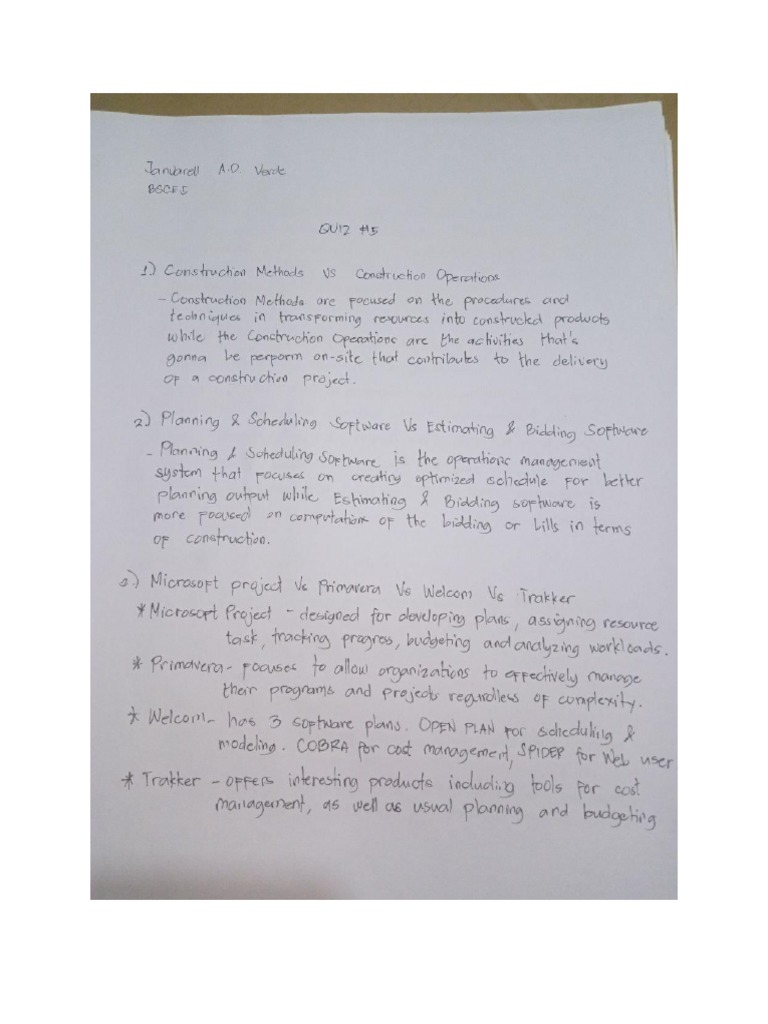 Januarell A.D. Verde
BSCE 5
QUIZ #5
1) Construction Methods VS Construction Operations
- Construction Methods are focused on the procedures and
techniques in transforming resources into constructed products
while the Construction Operations are the activities that's
gonna be perform on-site that contributes to the delivery
of a construction project.
2) Planning & Scheduling Software Vs Estimating & Bidding Software
- Planning & Scheduling Software is the operations management
system that focuses on creating optimized schedule for better
planning output while Estimating & Bidding software is
more focused on computations of the bidding or bills in terms
of construction.
3.) Microsoft project Vs Primavera Vs Welcom Vs Trakker
* Microsoft Project - designed for developing plans, assigning resource
task, tracking progress, budgeting and analyzing workloads.
* Primavera - focuses to allow organizations to effectively manage
their programs and projects regardless of complexity.
* Welcom - has 3 software plans. OPEN PLAN for scheduling &
modeling. COBRA for cost management, SPIDER for Web user
* Trakker - offers interesting products including tools for cost
management, as well as usual planning and budgeting